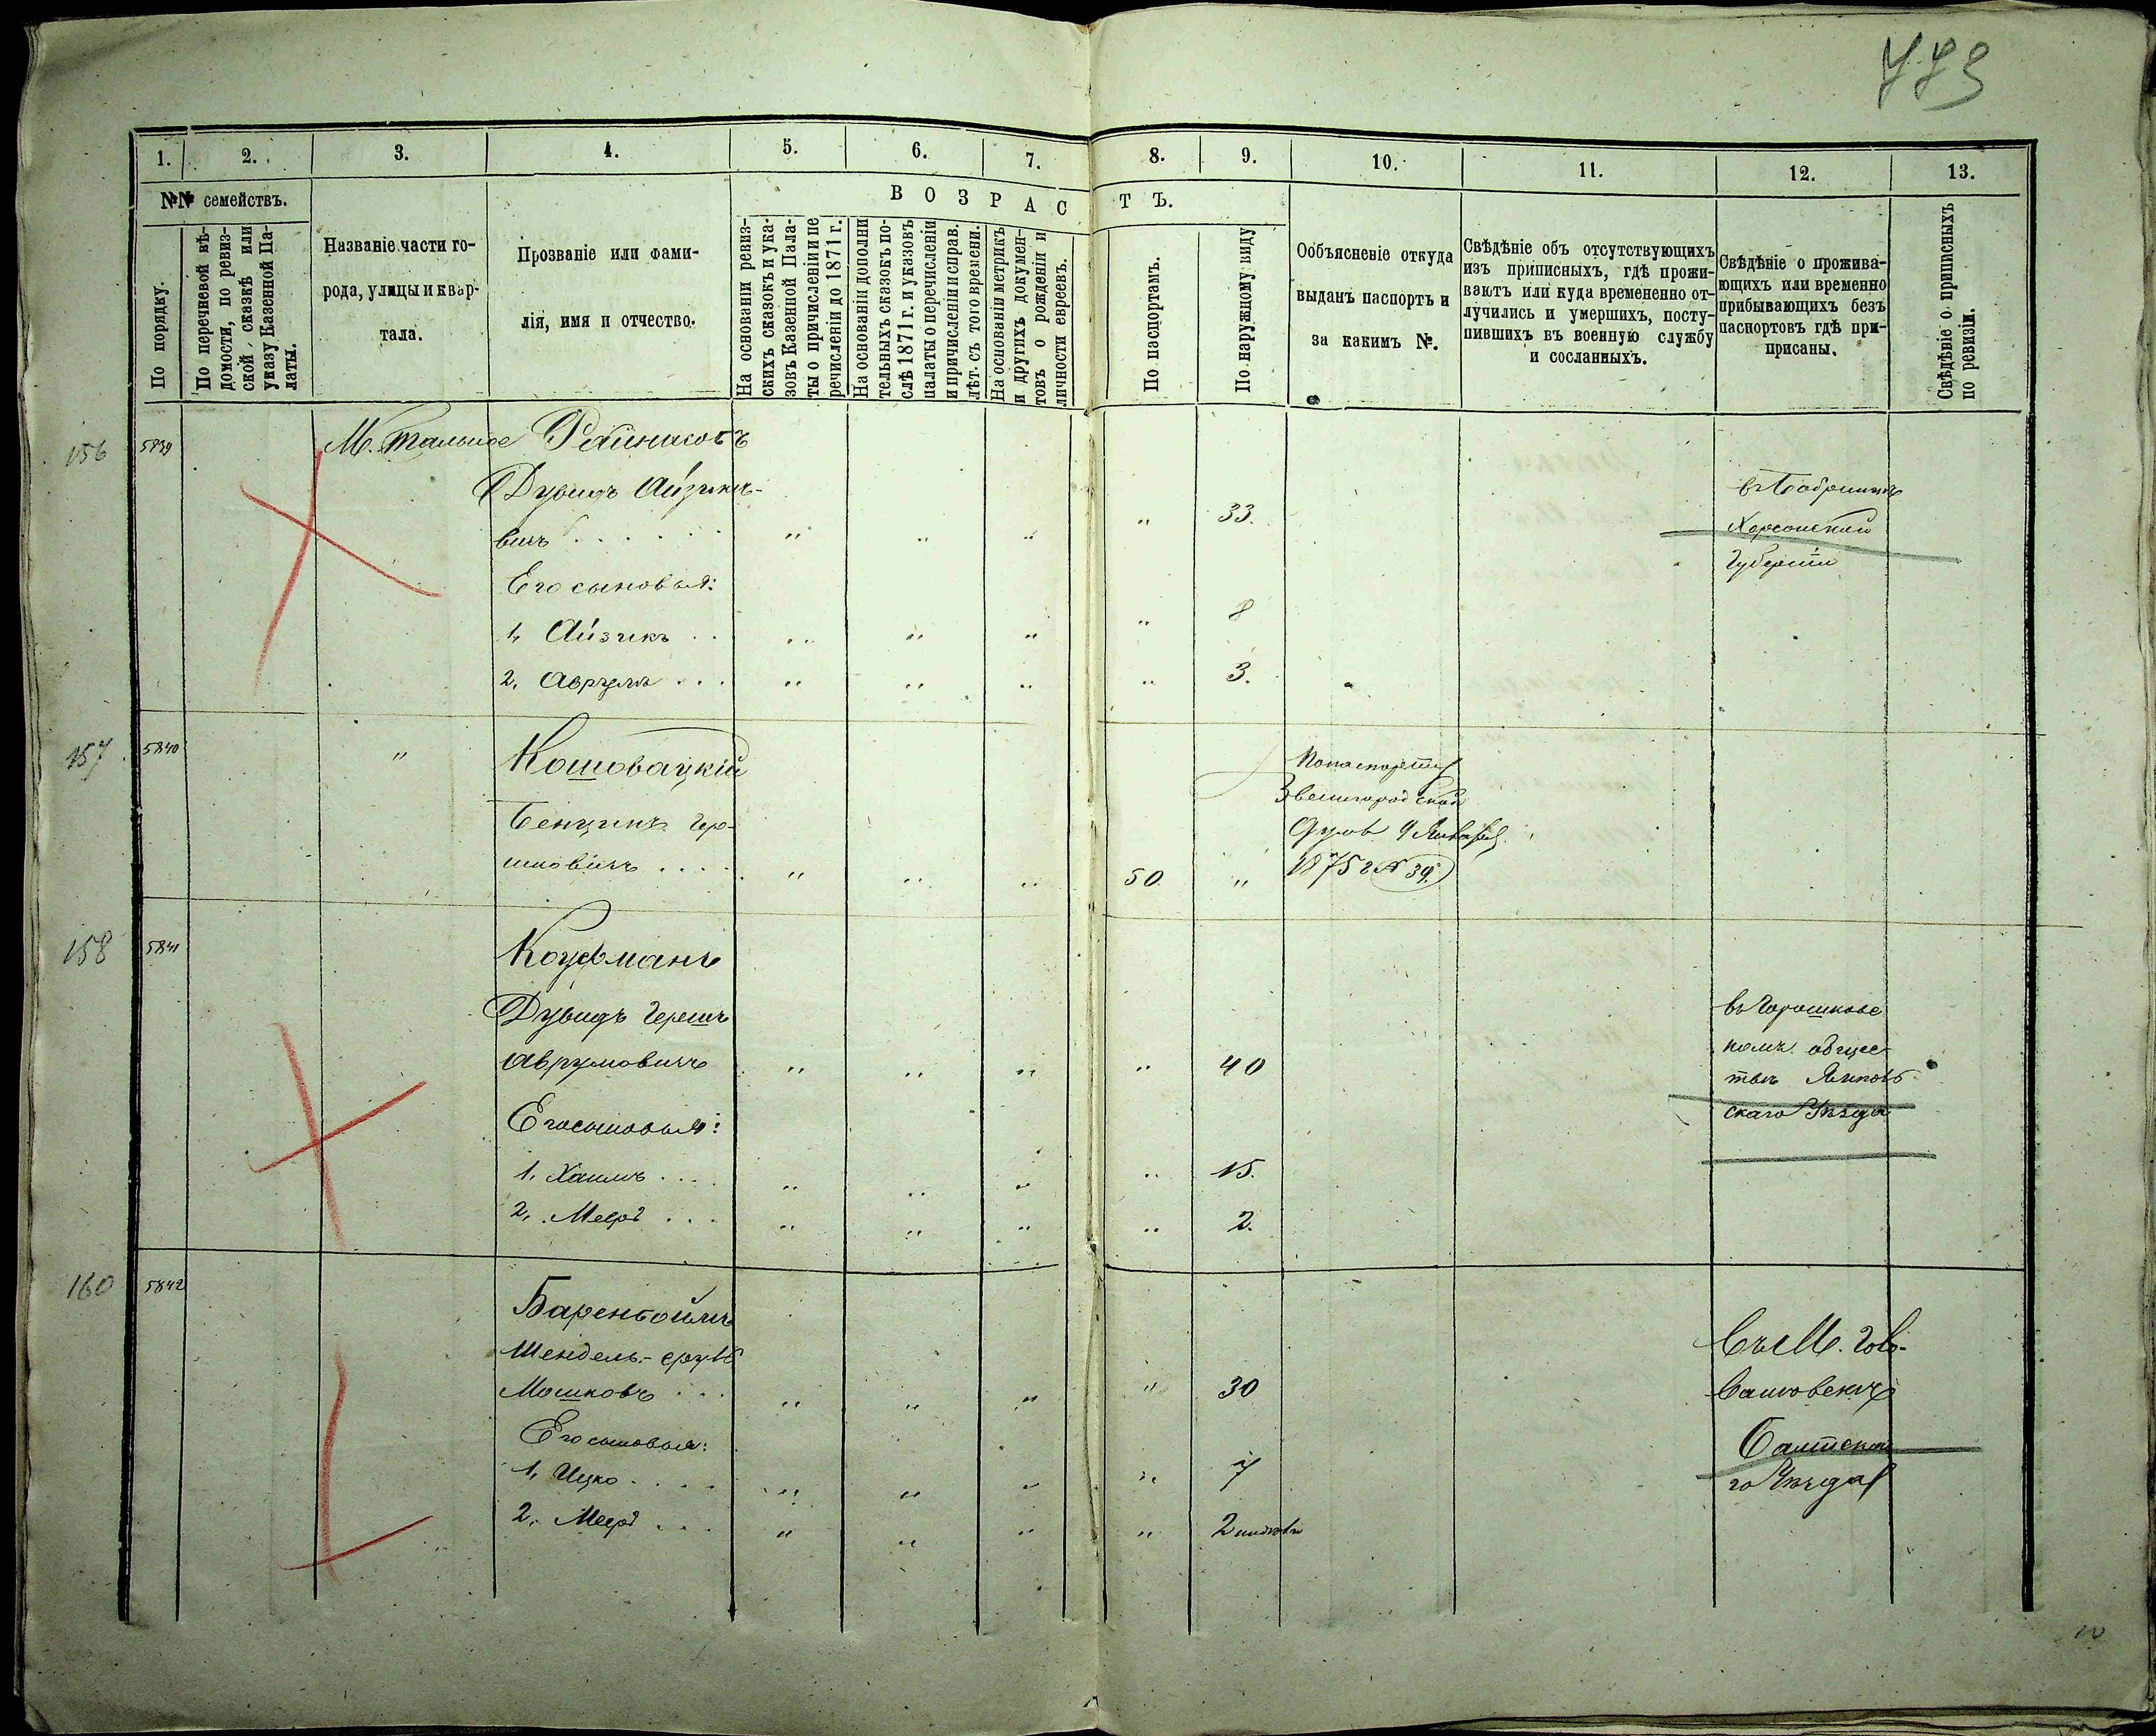 773
1. 2. 3. 4. 5. 6. 7. 8. 9. 10. 11. 12. 13.
№№ семействъ.
По порядку.
По перечневой вѣ-
домости, по ревиз-
ской, сказкѣ или
указу Казенной Па-
латы.
Названіе части го-
рода, улицы и квар-
тала.
Прозваніе или фами-
лія, имя и отчество.
ВОЗРАСТЪ.
На основаніи ревиз-
скихъ сказокъ и ука-
зовъ Казенной Пала-
ты о причисленіи и пе
речисленіи до 1871 г.
На основаніи дополни
тельныхъ сказокъ по-
слѣ 1871 г. и указовъ
палаты о перечисленіи
и причисленіи и справ.
лѣт. съ того времени.
На основаніи метрикъ
и другихъ докумен-
товъ о рожденіи и
личности евреевъ.
По паспортамъ.
По наружному виду
Ообъясненіе откуда
выданъ паспортъ и
за какимъ №.
Свѣдѣніе объ отсутствующихъ
изъ приписныхъ, гдѣ прожи-
ваютъ или куда времененно от-
лучились и умершихъ, посту-
пившихъ въ военную службу
и сосланныхъ.
Свѣдѣніе о прожива-
ющихъ или временно
прибывающихъ безъ
паспортовъ гдѣ при-
присаны.
Свѣдѣніе о приписныхъ
по ревизіи.
156 5839 М. Тальное
Дувидъ Айзико-
вичъ . . . . . . " " " " 33.
Его сыновья:
1, Айзикъ . . " " " " 8
2, Аврумъ . . . " " " " 3.
въ Бобринцѣ
Херсонской
Губерніи
157 5840 " Кошовацкій
Бенціонъ Гер-
шковичъ . . . . " " " 50. "
По паспорту
Звенигородской
Думы 9 Января
1875 г № 39.
158 5841 Кауфманъ
Дувидъ Гершъ
Аврумовичъ " " " " 40
Его сыновья:
1, Хаимъ . . . . " " " " 15.
2, Меєръ . . . " " " " 2.
въ Горошковс
комъ общес
твѣ
скаго Уѣзда
160 5842 Баренбоймъ
Мошковъ . . . " " " " 30
Его сыновья:
1, Ицко . . . . " " " " 7
2, Меєръ . . . " " " " 2
Въ М. Голо-
Балтска
го Уѣзда